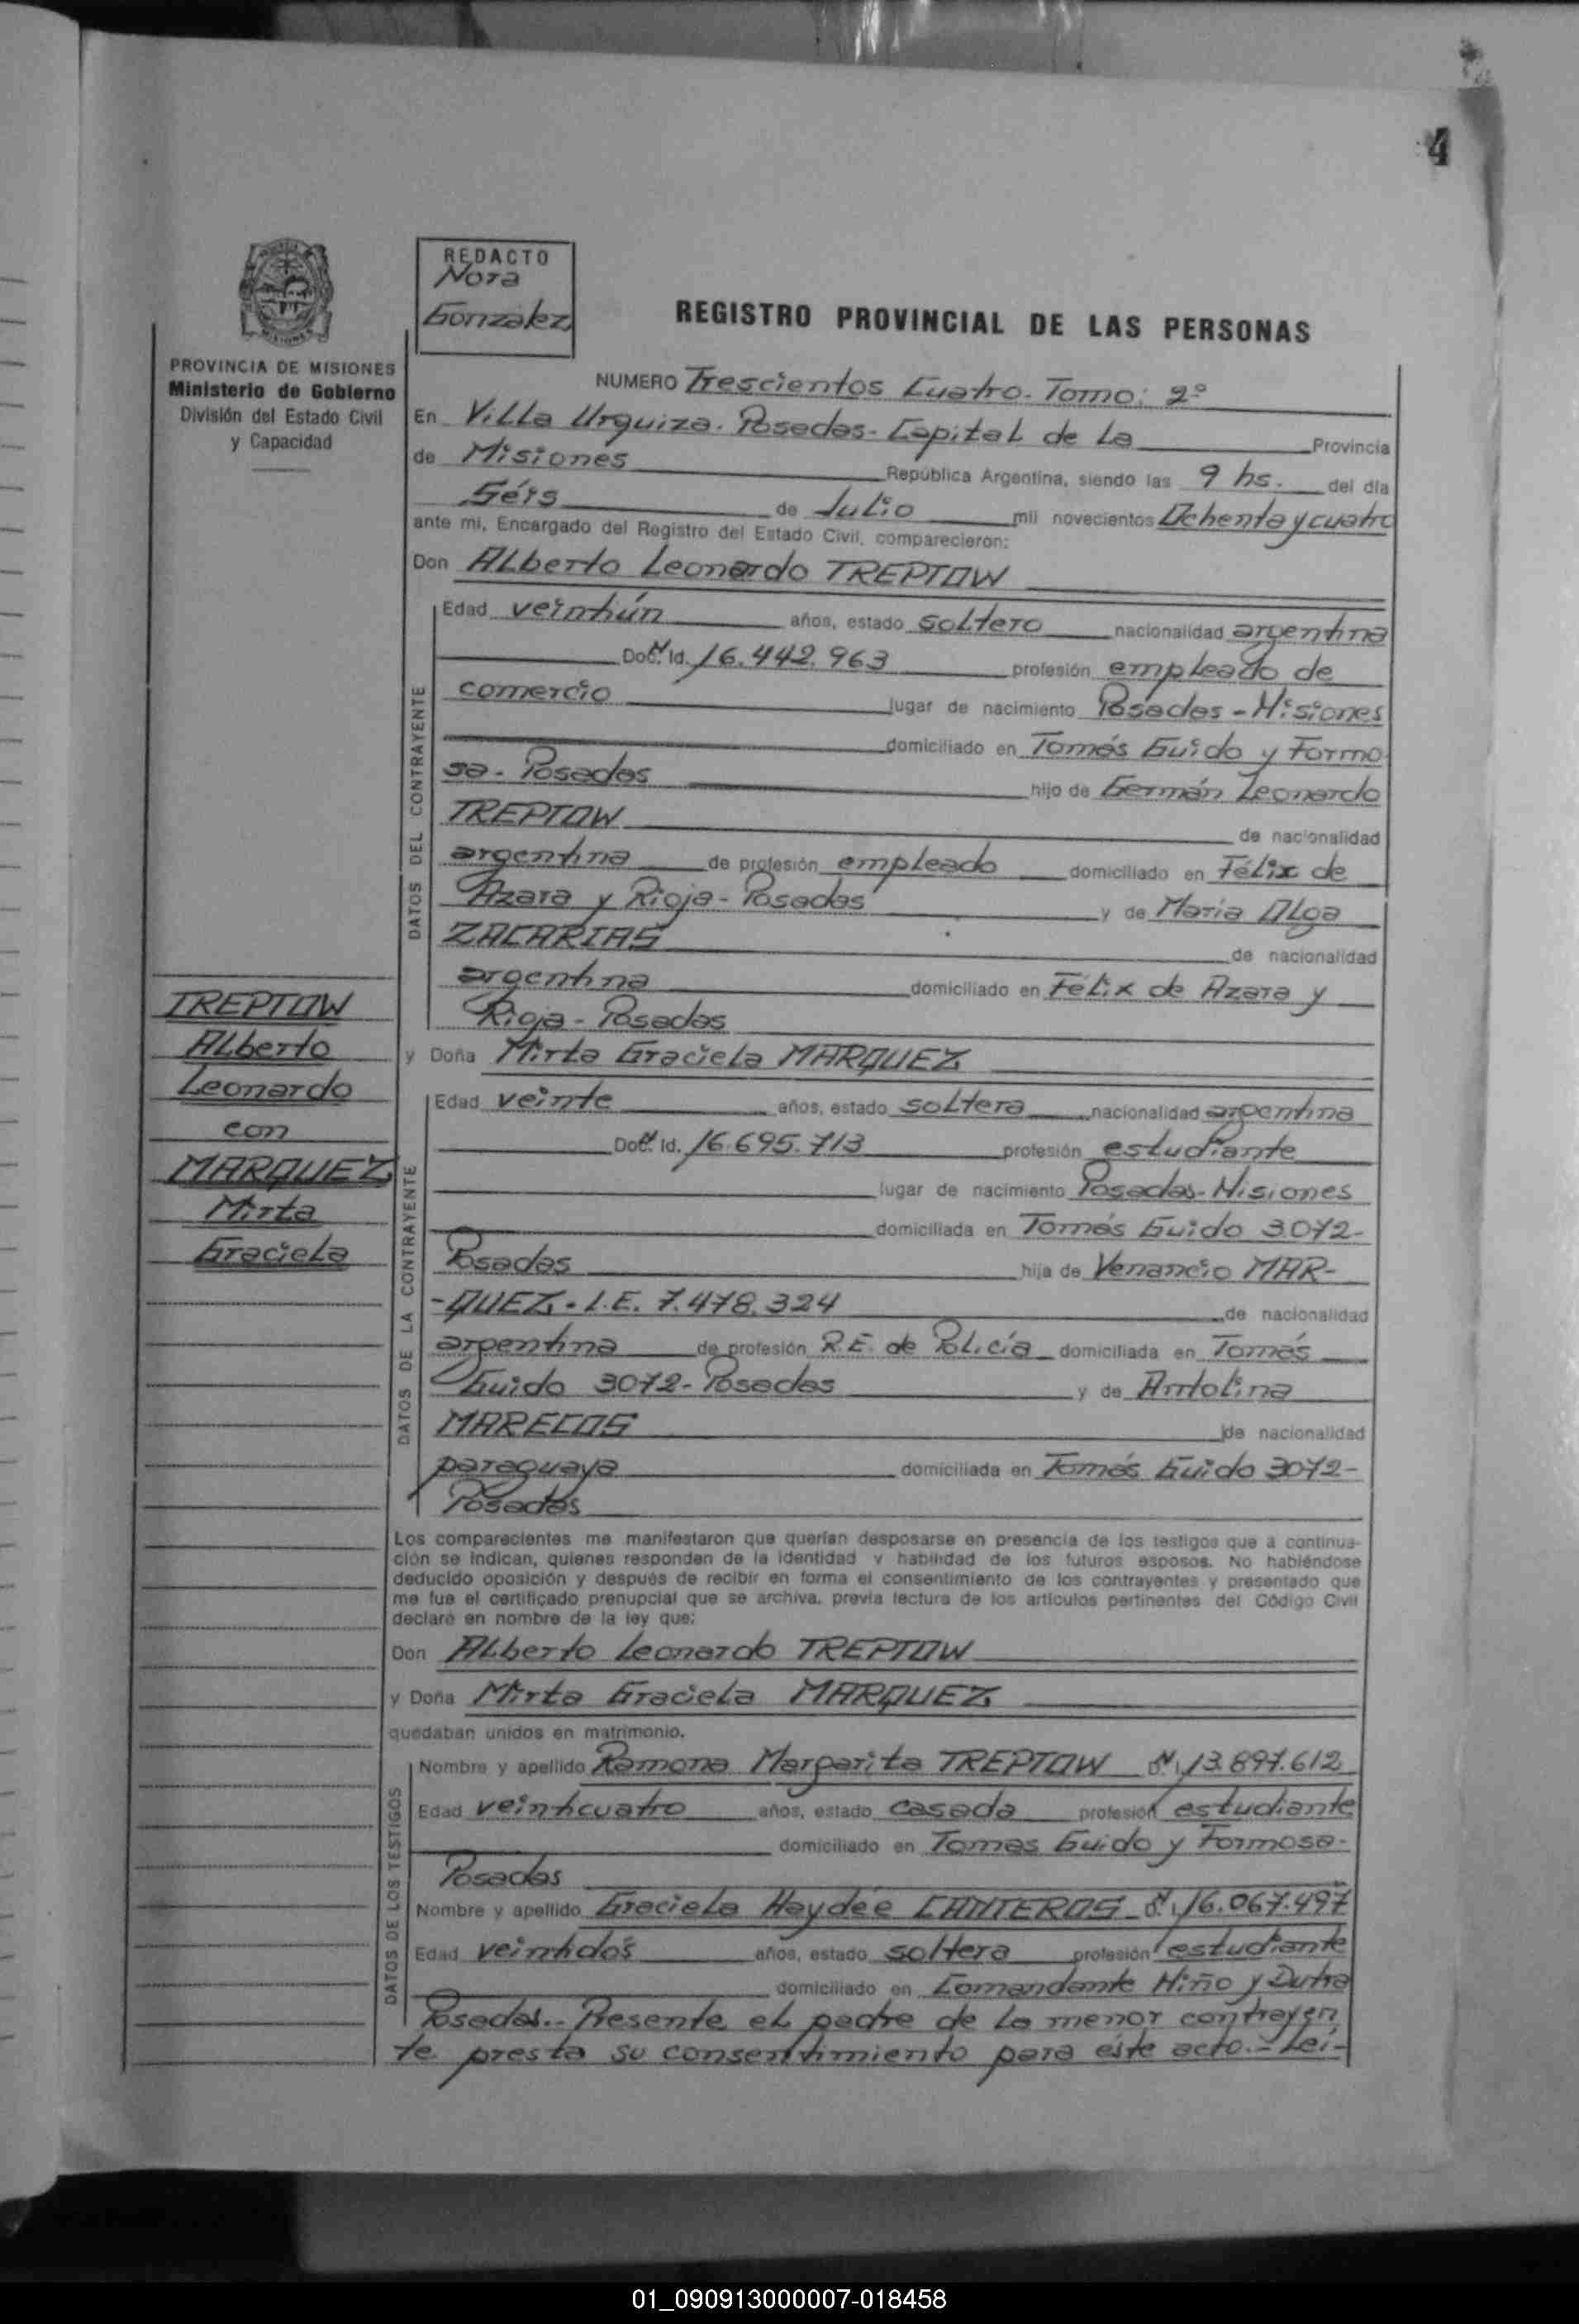 4
REDACTO
Nora
González
REGISTRO PROVINCIAL DE LAS PERSONAS
PROVINCIA DE MISIONES
Ministerio de Gobierno
División del Estado Civil
y Capacidad
NUMERO Trescientos Cuatro. Tomo: 2º
En Villa Urquiza. Posadas - Capital de La Provincia
de Misiones República Argentina, siendo las 9 hs. del día
Séis de Julio mil novecientos Ochenta y cuatro
ante mi, Encargado del Registro del Estado Civil, comparecieron:
Don Alberto Leonardo TREPTOW
DATOS DEL CONTRAYENTE
Edad veintiún años, estado soltero nacionalidad argentina
Doc. Id. 16.442.963 profesión empleado de
comercio lugar de nacimiento Posadas - Misiones
domiciliado en Tomás Guido y Formo
sa - Posadas hijo de Germán Leonardo
TREPTOW de nacionalidad
argentina de profesión empleado domiciliado en Félix de
Azara y Rioja - Posadas y de María Olga
ZACARIAS de nacionalidad
argentina domiciliado en Félix de Azara y
Rioja - Posadas
TREPTOW
Alberto
Leonardo
con
MARQUEZ
Mirta
Graciela
y Doña Mirta Graciela MARQUEZ
DATOS DE LA CONTRAYENTE
Edad veinte años, estado soltera nacionalidad argentina
Doc. Id. 16.695.713 profesión estudiante
lugar de nacimiento Posadas - Misiones
domiciliada en Tomás Guido 3072-
Posadas hija de Venancio MAR-
-QUEZ - L.E. 7.478.324 de nacionalidad
argentina de profesión R.E. de Policía domiciliada en Tomás
Guido 3072 - Posadas y de Antolina
MARECOS de nacionalidad
paraguaya domiciliada en Tomás Guido 3072-
Posadas
Los comparecientes me manifestaron que querían desposarse en presencia de los testigos que a continua-
ción se indican, quienes responden de la identidad y habilidad de los futuros esposos. No habiéndose
deducido oposición y después de recibir en forma el consentimiento de los contrayentes y presentado que
me fue el certificado prenupcial que se archiva, previa lectura de los artículos pertinentes del Código Civil
declaré en nombre de la ley que:
Don Alberto Leonardo TREPTOW
y Doña Mirta Graciela MARQUEZ
quedaban unidos en matrimonio.
DATOS DE LOS TESTIGOS
Nombre y apellido Ramona Margarita TREPTOW 13.897.612
Edad veinticuatro años, estado casada profesión estudiante
domiciliado en Tomas Guido y Formosa-
Posadas
Nombre y apellido Graciela Haydée CANTEROS 16.067.497
Edad veintidós años, estado soltera profesión estudiante
domiciliado en Comandante Miño y Dutra
Posadas.- Presente el padre de la menor contrayen
te presta su consentimiento para éste acto.- Leí-
01_090913000007-018458